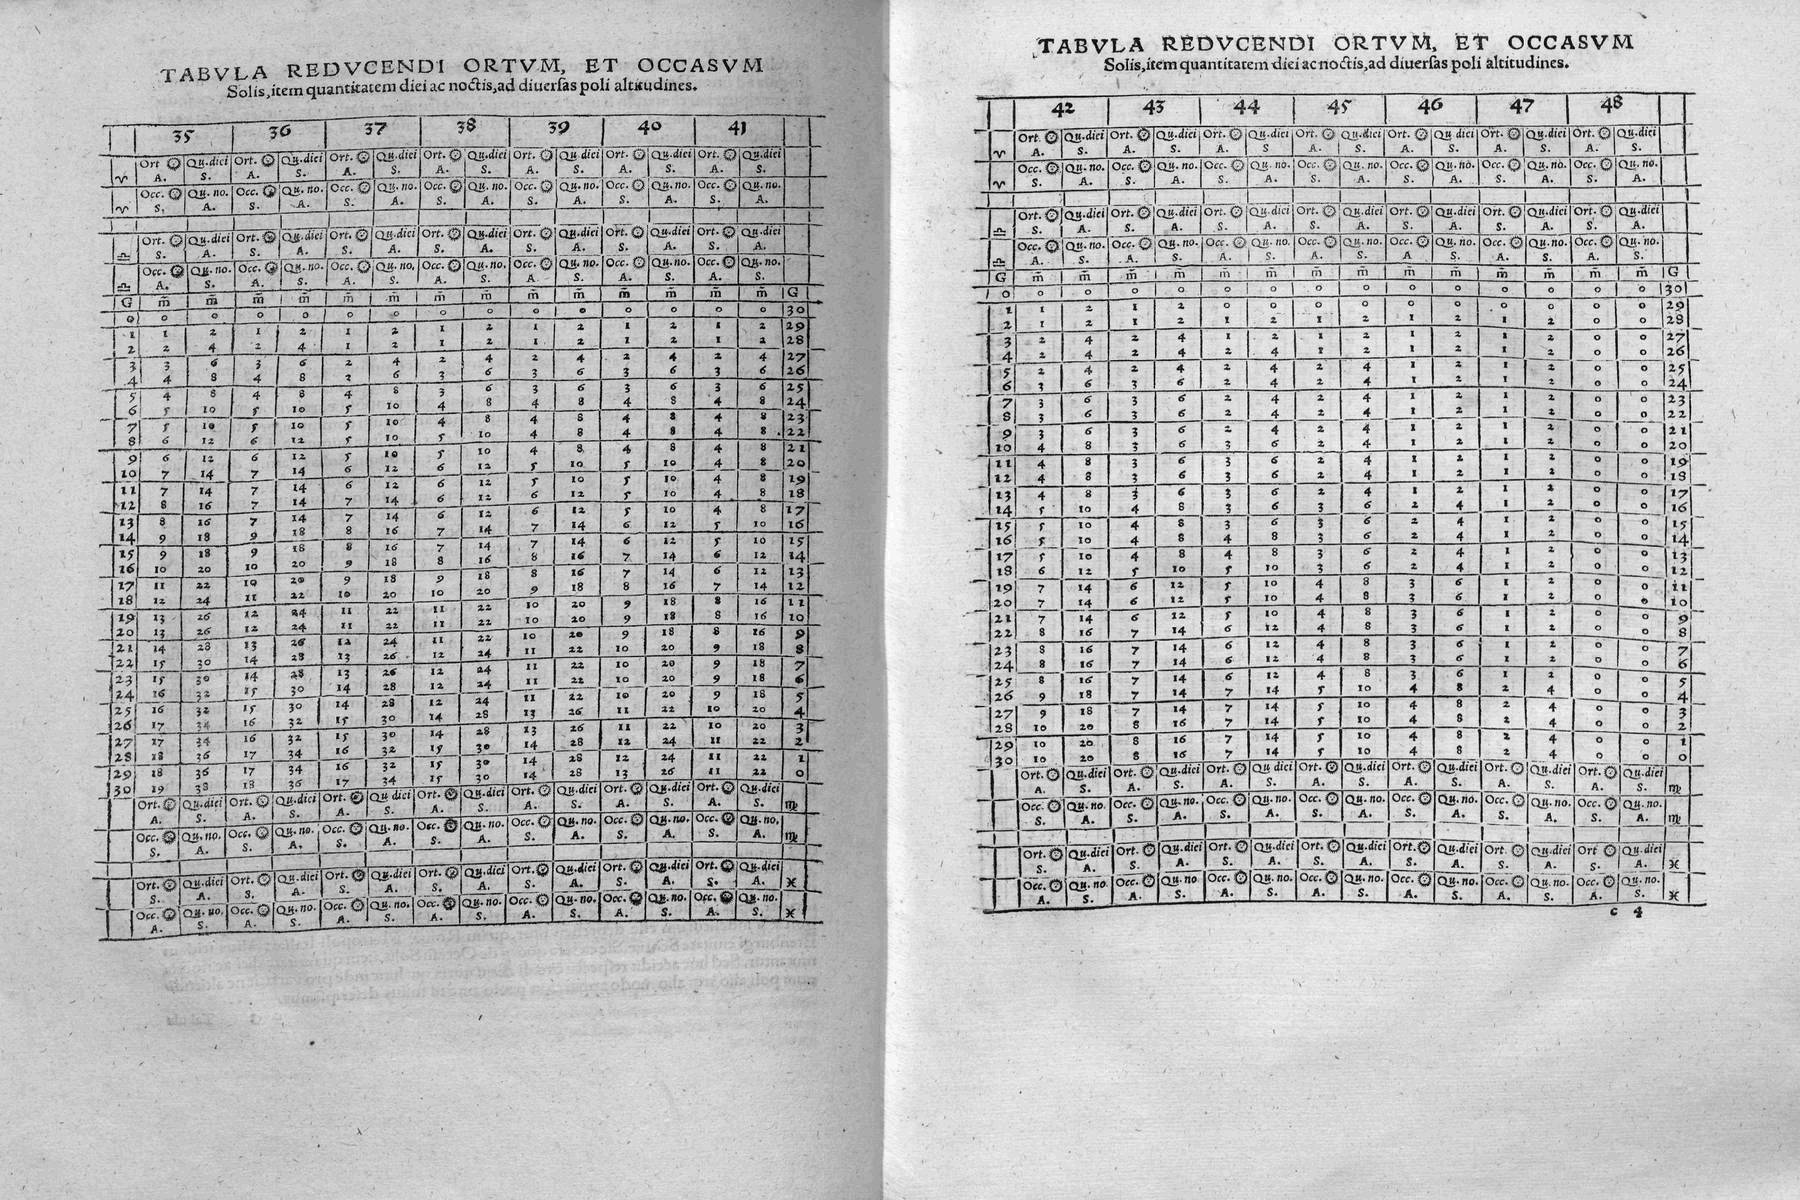 TABVLA REDVCENDI ORTVM, ET OCCASVM
Solis,item quantitatem diei ac noctis,ad diuersas poli altitudines.
35 36 37 38 39 40 41
Ort ☉ Qu.diei Ort. ☉ Qu.diei Ort. ☉ Qu.diei Ort. ☉ Qu.diei Ort. ☉ Qu.diei Ort. ☉ Qu.diei Ort. ☉ Qu.diei
♈ A. S. A. S. A. S. A. S. A. S. A. S. A. S.
Occ. ☉ Qu. no. Occ. ☉ Qu. no. Occ. ☉ Qu. no. Occ. ☉ Qu. no. Occ. ☉ Qu. no. Occ. ☉ Qu. no. Occ. ☉ Qu. no.
♈ S. A. S. A. S. A. S. A. S. A. S. A. S. A.
Ort. ☉ Qu.diei Ort. ☉ Qu.diei Ort. ☉ Qu.diei Ort. ☉ Qu.diei Ort. ☉ Qu.diei Ort. ☉ Qu.diei Ort. ☉ Qu.diei
♎ S. A. S. A. S. A. S. A. S. A. S. A. S. A.
Occ. ☉ Qu. no. Occ. ☉ Qu. no. Occ. ☉ Qu. no. Occ. ☉ Qu. no. Occ. ☉ Qu. no. Occ. ☉ Qu. no. Occ. ☉ Qu. no.
♎ A. S. A. S. A. S. A. S. A. S. A. S. A. S.
G m̄ m̄ m̄ m̄ m̄ m̄ m̄ m̄ m̄ m̄ m̄ m̄ m̄ m̄ G
0 0 0 0 0 0 0 0 0 0 0 0 0 0 0 30
1 1 2 1 2 1 2 1 2 1 2 1 2 1 2 29
2 2 4 2 4 1 2 1 2 1 2 1 2 1 2 28
3 3 6 3 6 2 4 2 4 2 4 2 4 2 4 27
4 4 8 4 8 2 6 3 6 3 6 3 6 3 6 26
5 4 8 4 8 4 8 3 6 3 6 3 6 3 6 25
6 5 10 5 10 5 10 4 8 4 8 4 8 4 8 24
7 5 10 5 10 5 10 4 8 4 8 4 8 4 8 23
8 6 12 6 12 5 10 5 10 4 8 4 8 4 8 22
9 6 12 6 12 5 10 5 10 4 8 4 8 4 8 21
10 7 14 7 14 6 12 6 12 5 10 5 10 4 8 20
11 7 14 7 14 6 12 6 12 5 10 5 10 4 8 19
12 8 16 7 14 7 14 6 12 6 12 5 10 4 8 18
13 8 16 7 14 7 14 6 12 6 12 5 10 4 8 17
14 9 18 9 18 8 16 7 14 7 14 6 12 5 10 16
15 9 18 9 18 8 16 7 14 7 14 6 12 5 10 15
16 10 20 10 20 9 18 8 16 8 16 7 14 6 12 14
17 11 22 10 20 9 18 9 18 8 16 7 14 6 12 13
18 12 24 11 22 10 20 10 20 9 18 8 16 7 14 12
19 13 26 12 24 11 22 11 22 10 20 9 18 8 16 11
20 13 26 12 24 11 22 11 22 10 20 9 18 8 16 10
21 14 28 13 26 12 24 11 22 10 20 9 18 8 16 9
22 15 30 14 28 13 26 12 24 11 22 10 20 9 18 8
23 15 30 14 28 13 26 12 24 11 22 10 20 9 18 7
24 16 32 15 30 14 28 12 24 11 22 10 20 9 18 6
25 16 32 15 30 14 28 12 24 11 22 10 20 9 18 5
26 17 34 16 32 15 30 14 28 13 26 11 22 10 20 4
27 17 34 16 32 15 30 14 28 13 26 11 22 10 20 3
28 18 36 17 34 16 32 15 30 14 28 12 24 11 22 2
29 18 36 17 34 16 32 15 30 14 28 12 24 11 22 1
30 19 38 18 36 17 34 15 30 14 28 13 26 11 22 0
Ort. ☉ Qu.diei Ort. ☉ Qu.diei Ort. ☉ Qu.diei Ort. ☉ Qu.diei Ort. ☉ Qu.diei Ort. ☉ Qu.diei Ort. ☉ Qu.diei
A. S. A. S. A. S. A. S. A. S. A. S. A. S. ♍
Occ. ☉ Qu. no. Occ. ☉ Qu. no. Occ. ☉ Qu. no. Occ. ☉ Qu. no. Occ. ☉ Qu. no. Occ. ☉ Qu. no. Occ. ☉ Qu. no.
S. A. S. A. S. A. S. A. S. A. S. A. S. A. ♍
Ort. ☉ Qu.diei Ort. ☉ Qu.diei Ort. ☉ Qu.diei Ort. ☉ Qu.diei Ort. ☉ Qu.diei Ort. ☉ Qu.diei Ort. ☉ Qu.diei
S. A. S. A. S. A. S. A. S. A. S. A. S. A. ♓
Occ. ☉ Qu. no. Occ. ☉ Qu. no. Occ. ☉ Qu. no. Occ. ☉ Qu. no. Occ. ☉ Qu. no. Occ. ☉ Qu. no. Occ. ☉ Qu. no.
A. S. A. S. A. S. A. S. A. S. A. S. A. S. ♓
TABVLA REDVCENDI ORTVM, ET OCCASVM
Solis,item quantitatem diei ac noctis,ad diuersas poli altitudines.
42 43 44 45 46 47 48
Ort. ☉ Qu.diei Ort. ☉ Qu.diei Ort. ☉ Qu.diei Ort. ☉ Qu.diei Ort. ☉ Qu.diei Ort. ☉ Qu.diei Ort. ☉ Qu.diei
♈ A. S. A. S. A. S. A. S. A. S. A. S. A. S.
Occ. ☉ Qu. no. Occ. ☉ Qu. no. Occ. ☉ Qu. no. Occ. ☉ Qu. no. Occ. ☉ Qu. no. Occ. ☉ Qu. no. Occ. ☉ Qu. no.
♈ S. A. S. A. S. A. S. A. S. A. S. A. S. A.
Ort. ☉ Qu.diei Ort. ☉ Qu.diei Ort. ☉ Qu.diei Ort. ☉ Qu.diei Ort. ☉ Qu.diei Ort. ☉ Qu.diei Ort. ☉ Qu.diei
♎ S. A. S. A. S. A. S. A. S. A. S. A. S. A.
Occ. ☉ Qu. no. Occ. ☉ Qu. no. Occ. ☉ Qu. no. Occ. ☉ Qu. no. Occ. ☉ Qu. no. Occ. ☉ Qu. no. Occ. ☉ Qu. no.
♎ A. S. A. S. A. S. A. S. A. S. A. S. A. S.
G m̄ m̄ m̄ m̄ m̄ m̄ m̄ m̄ m̄ m̄ m̄ m̄ m̄ m̄ G
0 0 0 0 0 0 0 0 0 0 0 0 0 0 0 30
1 1 2 1 2 0 0 0 0 0 0 0 0 0 0 29
2 1 2 1 2 1 2 1 2 1 2 1 2 0 0 28
3 2 4 2 4 1 2 1 2 1 2 1 2 0 0 27
4 2 4 2 4 2 4 1 2 1 2 1 2 0 0 26
5 2 4 2 4 2 4 2 4 1 2 1 2 0 0 25
6 3 6 3 6 2 4 2 4 1 2 1 2 0 0 24
7 3 6 3 6 2 4 2 4 1 2 1 2 0 0 23
8 3 6 3 6 2 4 2 4 1 2 1 2 0 0 22
9 3 6 3 6 2 4 2 4 1 2 1 2 0 0 21
10 4 8 3 6 3 6 2 4 1 2 1 2 0 0 20
11 4 8 3 6 3 6 2 4 1 2 1 2 0 0 19
12 4 8 3 6 3 6 2 4 1 2 1 2 0 0 18
13 4 8 3 6 3 6 2 4 1 2 1 2 0 0 17
14 5 10 4 8 3 6 3 6 2 4 1 2 0 0 16
15 5 10 4 8 3 6 3 6 2 4 1 2 0 0 15
16 5 10 4 8 4 8 3 6 2 4 1 2 0 0 14
17 5 10 4 8 4 8 3 6 2 4 1 2 0 0 13
18 6 12 5 10 5 10 3 6 2 4 1 2 0 0 12
19 7 14 6 12 5 10 4 8 3 6 1 2 0 0 11
20 7 14 6 12 5 10 4 8 3 6 1 2 0 0 10
21 7 14 6 12 5 10 4 8 3 6 1 2 0 0 9
22 8 16 7 14 6 12 4 8 3 6 1 2 0 0 8
23 8 16 7 14 6 12 4 8 3 6 1 2 0 0 7
24 8 16 7 14 6 12 4 8 3 6 1 2 0 0 6
25 8 16 7 14 6 12 4 8 3 6 1 2 0 0 5
26 9 18 7 14 7 14 5 10 4 8 2 4 0 0 4
27 9 18 7 14 7 14 5 10 4 8 2 4 0 0 3
28 10 20 8 16 7 14 5 10 4 8 2 4 0 0 2
29 10 20 8 16 7 14 5 10 4 8 2 4 0 0 1
30 10 20 8 16 7 14 5 10 4 8 2 4 0 0 0
Ort. ☉ Qu.diei Ort. ☉ Qu.diei Ort. ☉ Qu.diei Ort. ☉ Qu.diei Ort. ☉ Qu.diei Ort. ☉ Qu.diei Ort. ☉ Qu.diei
A. S. A. S. A. S. A. S. A. S. A. S. A. S. ♍
Occ. ☉ Qu. no. Occ. ☉ Qu. no. Occ. ☉ Qu. no. Occ. ☉ Qu. no. Occ. ☉ Qu. no. Occ. ☉ Qu. no. Occ. ☉ Qu. no.
S. A. S. A. S. A. S. A. S. A. S. A. S. A. ♍
Ort. ☉ Qu.diei Ort. ☉ Qu.diei Ort. ☉ Qu.diei Ort. ☉ Qu.diei Ort. ☉ Qu.diei Ort. ☉ Qu.diei Ort ☉ Qu.diei
S. A. S. A. S. A. S. A. S. A. S. A. S. A. ♓
Occ. ☉ Qu. no. Occ. ☉ Qu. no Occ. ☉ Qu. no. Occ. ☉ Qu. no. Occ. ☉ Qu. no. Occ. ☉ Qu. no. Occ. ☉ Qu. no.
A. S. A. S. A. S. A. S. A. S. A. S. A. S. ♓
c 4